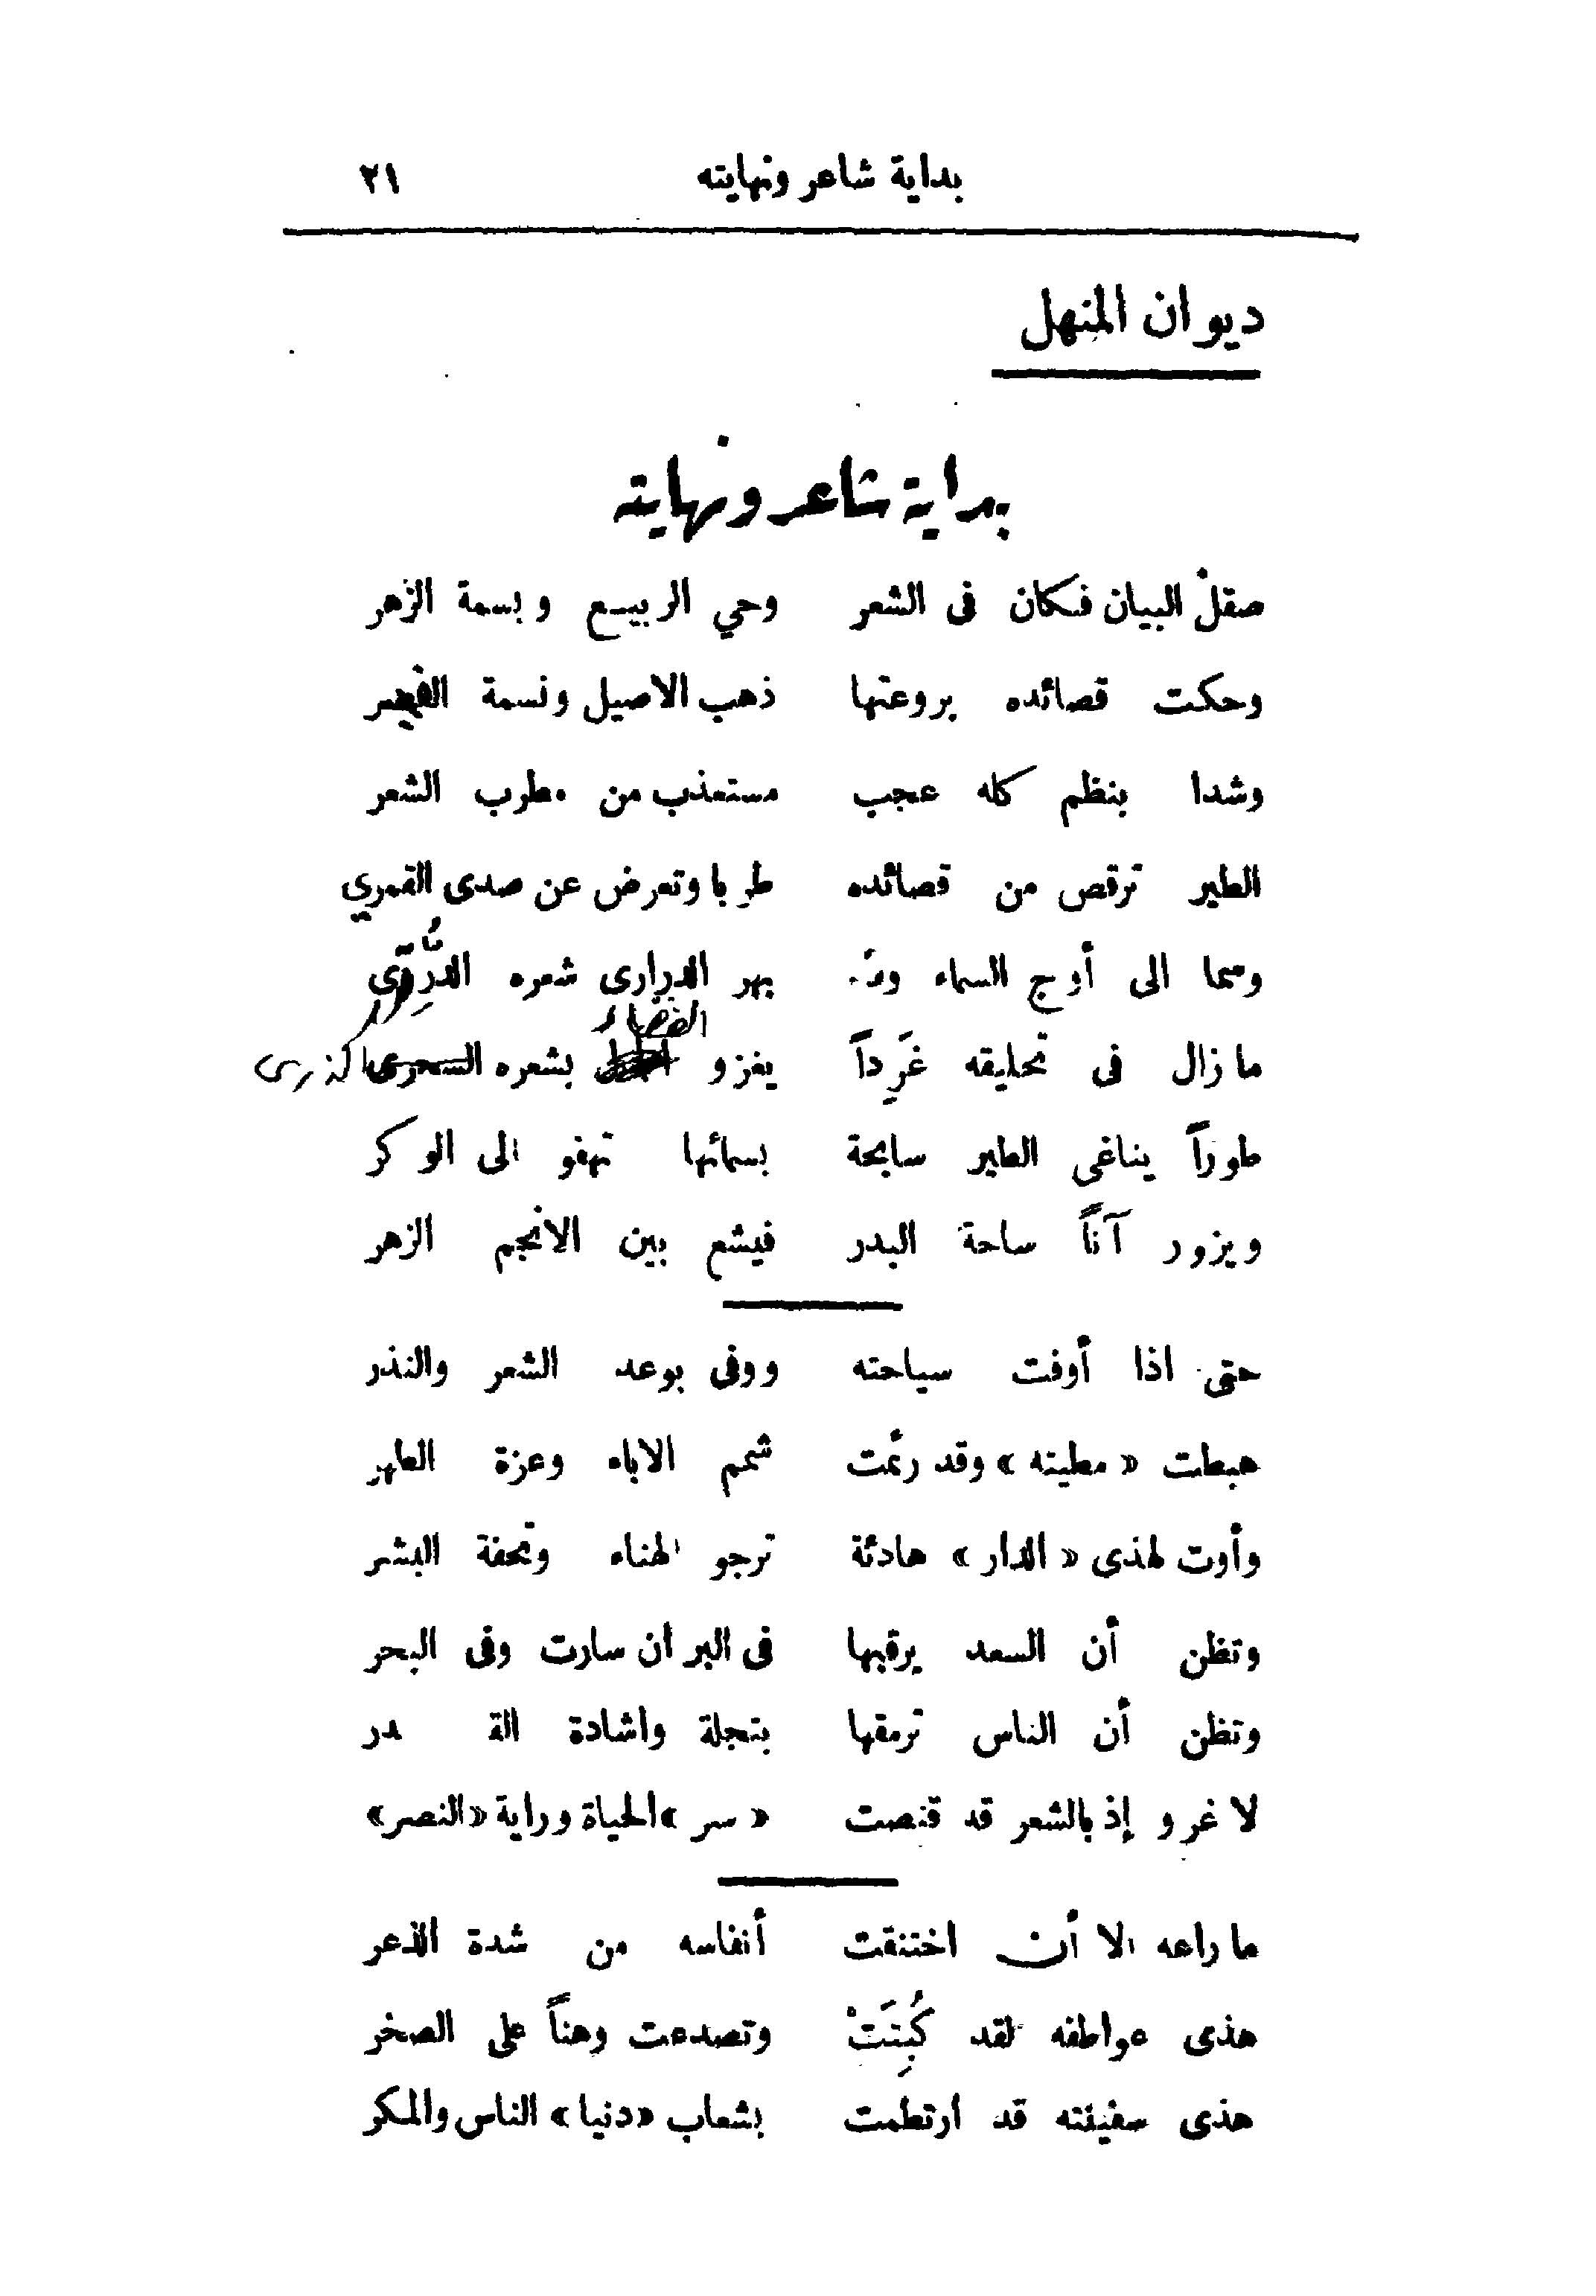 بداية شاعر ونهايته ٢١
ديوان المنهل
بداية شاعر ونهايته
صقلْ البيان فكان فى الشعر وحي الربيع وبسمة الزهر
وحكت قصائده بروعتها ذهب الاصيل ونسمة الفجر
وشدا بنظم كله عجب مستعذب من مطرب الشعر
الطير ترقص من قصائده طربا وتعرض عن صدى القمري
وسما الى أوج السماء بهر الدرارى شعره
الفضاء
ما زال فى تحليقه غَرِداً يغزو بشعره السحرى
طوراً يناغى الطير سابحة بسمائها تهفو الى الوكر
ويزور آناً ساحة البدر فيشع بين الانجم الزهر
حتى اذا أوفت سياحته ووفى بوعد الشعر والنذر
هبطت « مطيته » وقد رئمت شمم الاباء وعزة الطهر
وأوت لهذى « الدار » هادئة ترجو الهناء وتحفة البشر
وتظن أن السعد يرقبها فى البر ان سارت وفى البحر
وتظن أن الناس ترمقها بتجلة واشادة القدر
لا غرو إذ بالشعر قد قنصت « سر »الحياة وراية «النصر»
ما راعه الا أن اختنقت أنفاسه من شدة الذعر
هذى عواطفه لقد كُبِتَتْ وتصدعت وهناً على الصخر
هذى سفينته قد ارتطمت بشعاب «دنيا» الناس والمكر